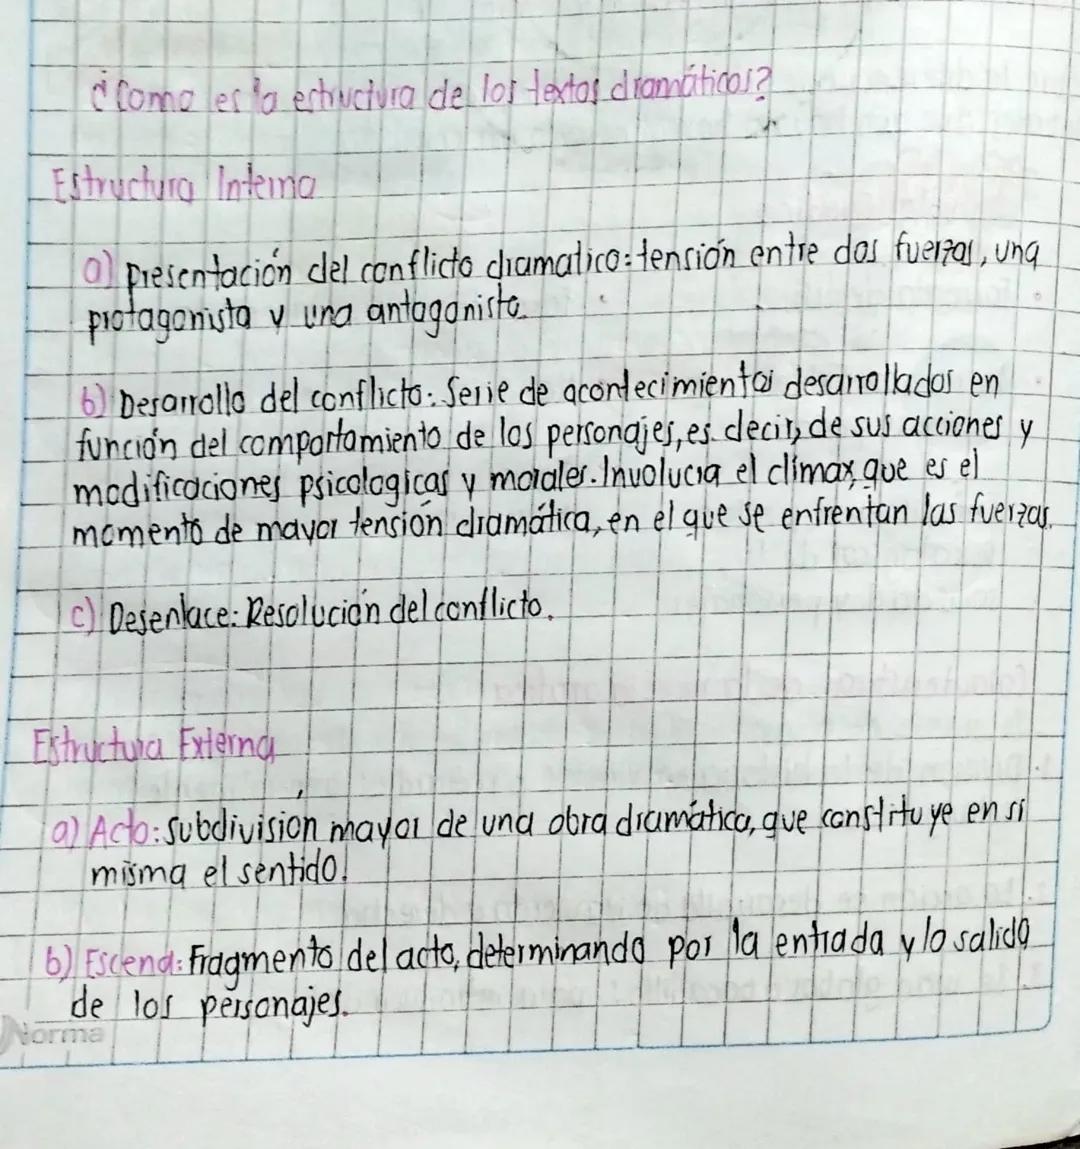 ¿Como es la estructura de los textos dramáticos?
Estructura Interna
a) presentación del conflicto dramatico: tensión entre dos fuerzas, una
protagonista y una antagonista.
b) Desarrollo del conflicto: Serie de acontecimientos desarrollados en
función del comportamiento de los personajes, es decir, de sus acciones y
modificaciones psicologicas y morales. Involucra el clímax, que es el
momento de mayor tensión dramática, en el que se enfrentan las fuerzas.
c) Desenlace: Resolución del conflicto.
Estructura Externa
a) Acto: subdivisión mayor de una obra dramática, que constituye en sí
misma el sentido.
b) Escena: Fragmento del acto, determinando por la entrada y lo salida
de los personajes.
Norma